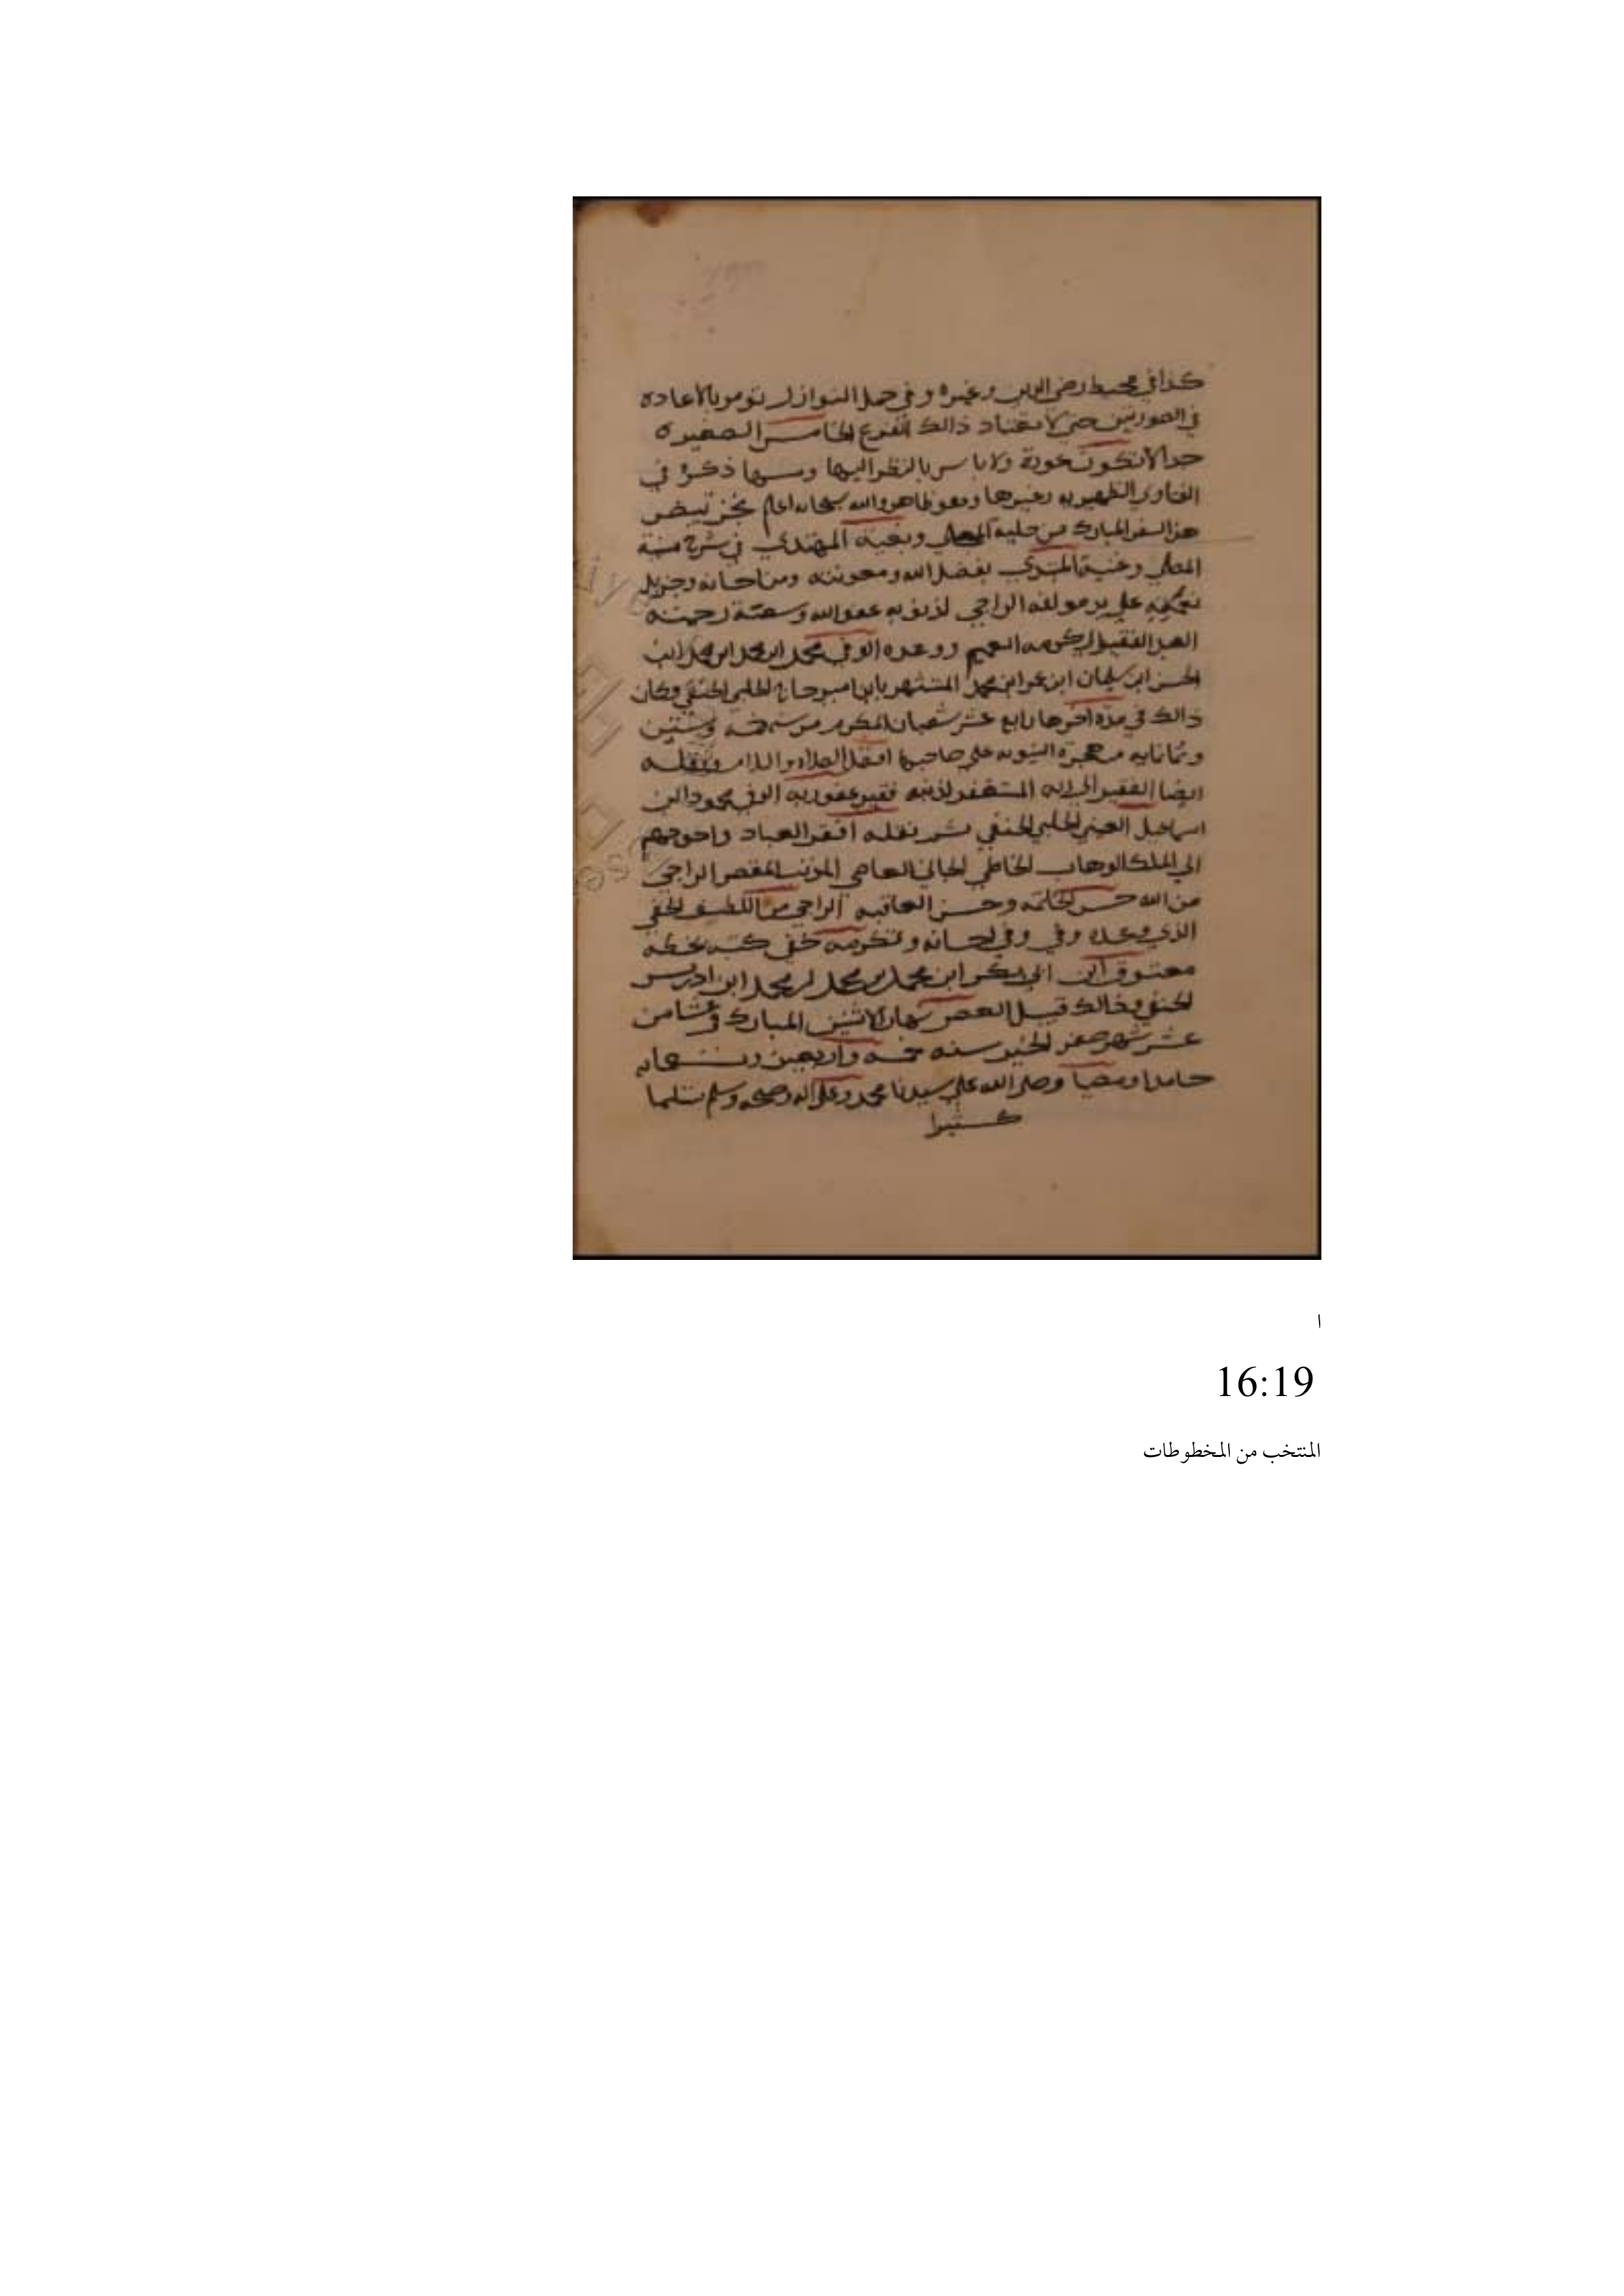 كذا في محيط رضي الدين وغيره وفي جمل النوازل تومر بالاعاده
في الصورتين حتي لا تعتاد ذالك الفرع الخامس الصغيره
جدا لا تكون عورة ولا باس بالنظر اليها ومسها ذكره في
الفتاوي الظهيريه وغيرها وهو ظاهر والله سبحانه اعلم نجز تبيض
هذا السفر المبارك من حلية المجلي وبغية المهتدي في شرح منية
المصلي وغنية المبتدي بفضل الله ومعونته ومن احسانه وجزيل
علي يد مولفه الراجي لذنوبه عفو الله وسعة رحمته
العبد الفقير الي كرمه العميم ووعده الوفي محمد ابن محمد ابن محمد ابن
الحسن ابن سليمان ابن عمر ابن محمد المشتهر بابن امير حاج الحلبي الحنفي وكان
ذالك في مدة اخرها رابع عشر شعبان المكرم من سنه خمسه وستين
وثمانمايه من هجرة النبويه علي صاحبها افضل الصلاه والسلام ونقله
ايضا الفقير الي الله المستغفر لذنبه فقير عفو ربه الوفي محمود ابن
اسماعيل العيني الحلبي الحنفي ثم نقله افقر العباد واحوجهم
الي الملك الوهاب الخاطي الجاني العاصي المذنب المقصر الراجي
من الله حسن الخاتمه وحسن العاقبه الراجي من اللطف الخفي
الذي وعده وفي وفي احسانه وتكرمه كتبه بخطه
معتوق ابن ابي بكر ابن محمد بن محمد بن محمد ابن ادريس
الحنفي وذالك قبيل العصر نهار الاثنين المبارك في ثامن
عشر شهر صفر الخير سنه خمسه واربعين وتسعمايه
حامدا ومصليا وصلى الله علي سيدنا محمد وعلى اله وصحبه وسلم تسليما
كثيرا
ا
16:19
المنتخب من المخطوطات